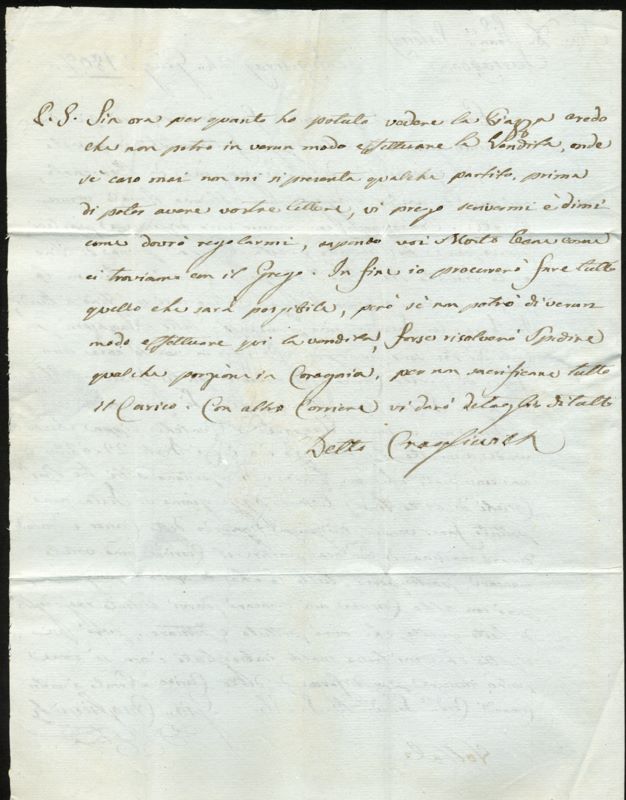 P. S. Sin ora per quanto ho potuto vedere la Piazza credo
che non potrò in verun modo effettuare la Vendita, onde
sè caso mai non mi si presenta qualche partito, prima
di poter avere vostre lettere, vi prego scrivermi è dirmi
come dovrò regolarmi, sapendo voi Molto Bene come
ci troviamo con il Grego. In fine io procurerò fare tutto
quello che sarà possibile, però sè non potrò di verun
modo effettuare qui la vendita, forse risolverò Spedire
qualche porzione in , per non sacrificare tutto
il Carico. Con altro Corriere vi darò detaglio di tutto
Detto